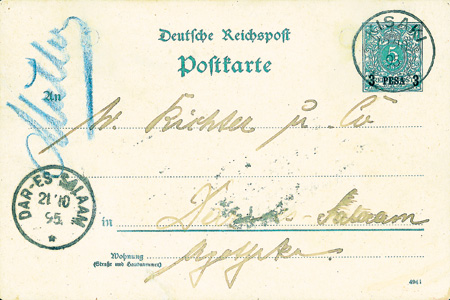 Deutsche Reichspost
Postkarte
KISAKI
5
3 PESA 3
An
W. Richter u Co
DAR-ES-SALAAM
21/10
95.
in
Salaam
Wohnung
(Straße und Hausnummer)
Apotheke